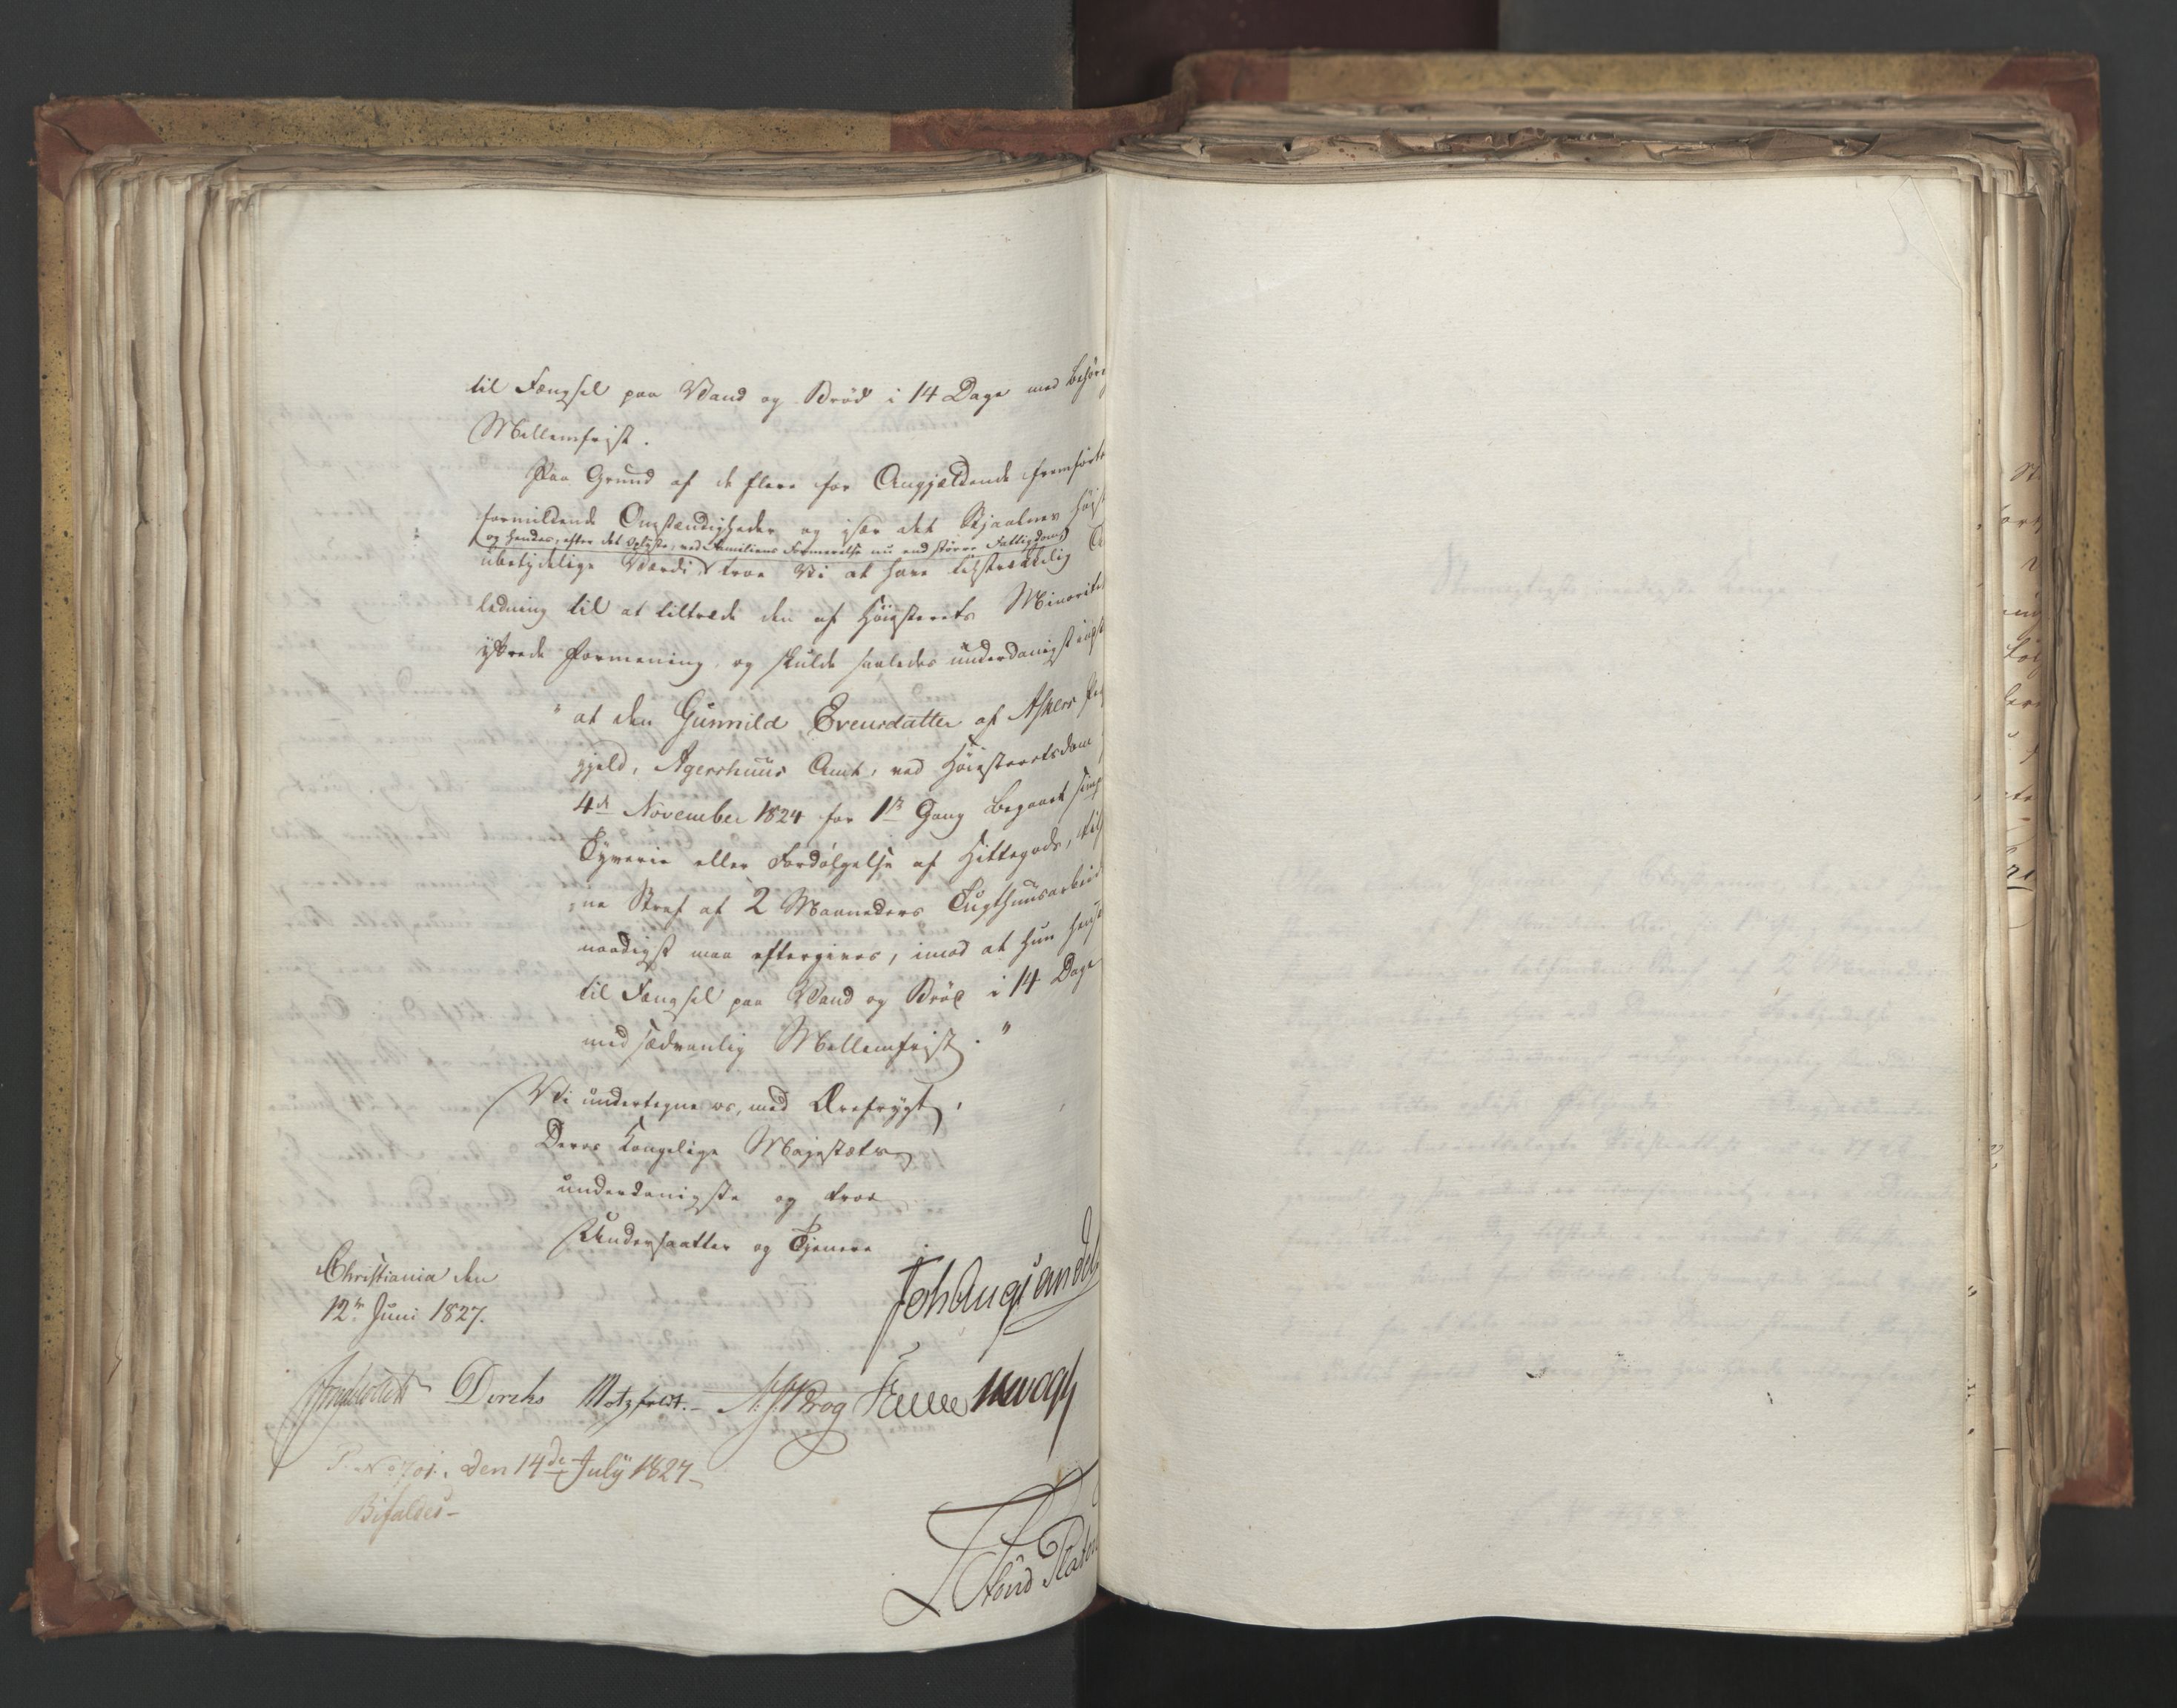 til Fængsel paa Vand og Brød i 14 Dage med behør
Mellemfrist.
Paa Grund af de flere for Angjældende fremførte
formildende Omstændigheder og især det Stjaalnes høist
(og hendes, efter det Oplyste, ved Familiens Formerelse nu end større Fattigdom)
ubetydelige Værdi troe Vi at have tilstrækkelig
ledning til at tiltræde den af Høiesterets Minoritet
yttrede Formening, og skulde saaledes underdanigst indst
"at den Gunnild Evensdatter af Askers Præ
gjeld, Agershuus Amt, ved Høiesteretsdom
4de November 1824 for 1ste Gang begaaet simp
Tyverie eller Fordølgelse af Hittegods, til
ne Straf af 2 Maaneders Tugthuusarbeid
naadigst maa eftergives, imod at hun hens
til Fængsel paa Vand og Brød i 14 Dage
med sædvanlig Mellemfrist."
Vi undertegne os, med Ærefrygt,
Deres Kongelige Majestæts
underdanigste og troe
Undersaatter og Tjenere
Christiania den
12te Juni 1827.
Joh Aug Sandels
Diriks Motzfeldt. Krog
P. No 701. Den 14de July 1827
Bifaldes